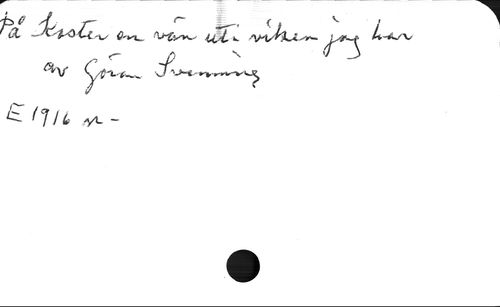 På Koster en vän uti viken jag har
av Göran Svenning
E 1916 n -